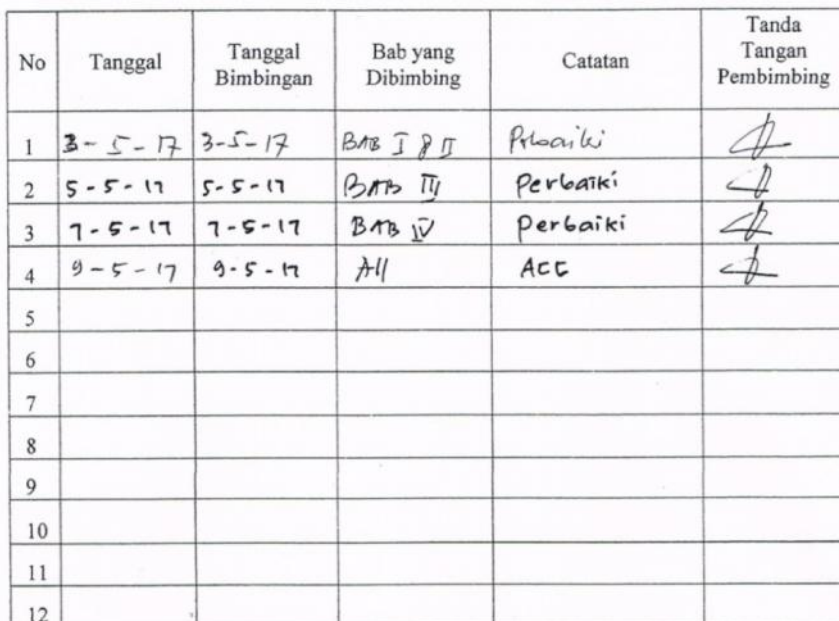 No Tanggal Tanggal Bimbingan Bab yang Dibimbing Catatan Tanda Tangan Pembimbing
1 3-5-17 3-5-17 BAB I & II Perbaiki
2 5-5-17 5-5-17 BAB III Perbaiki
3 7-5-17 7-5-17 BAB IV Perbaiki
4 9-5-17 9-5-17 All ACC
5
6
7
8
9
10
11
12